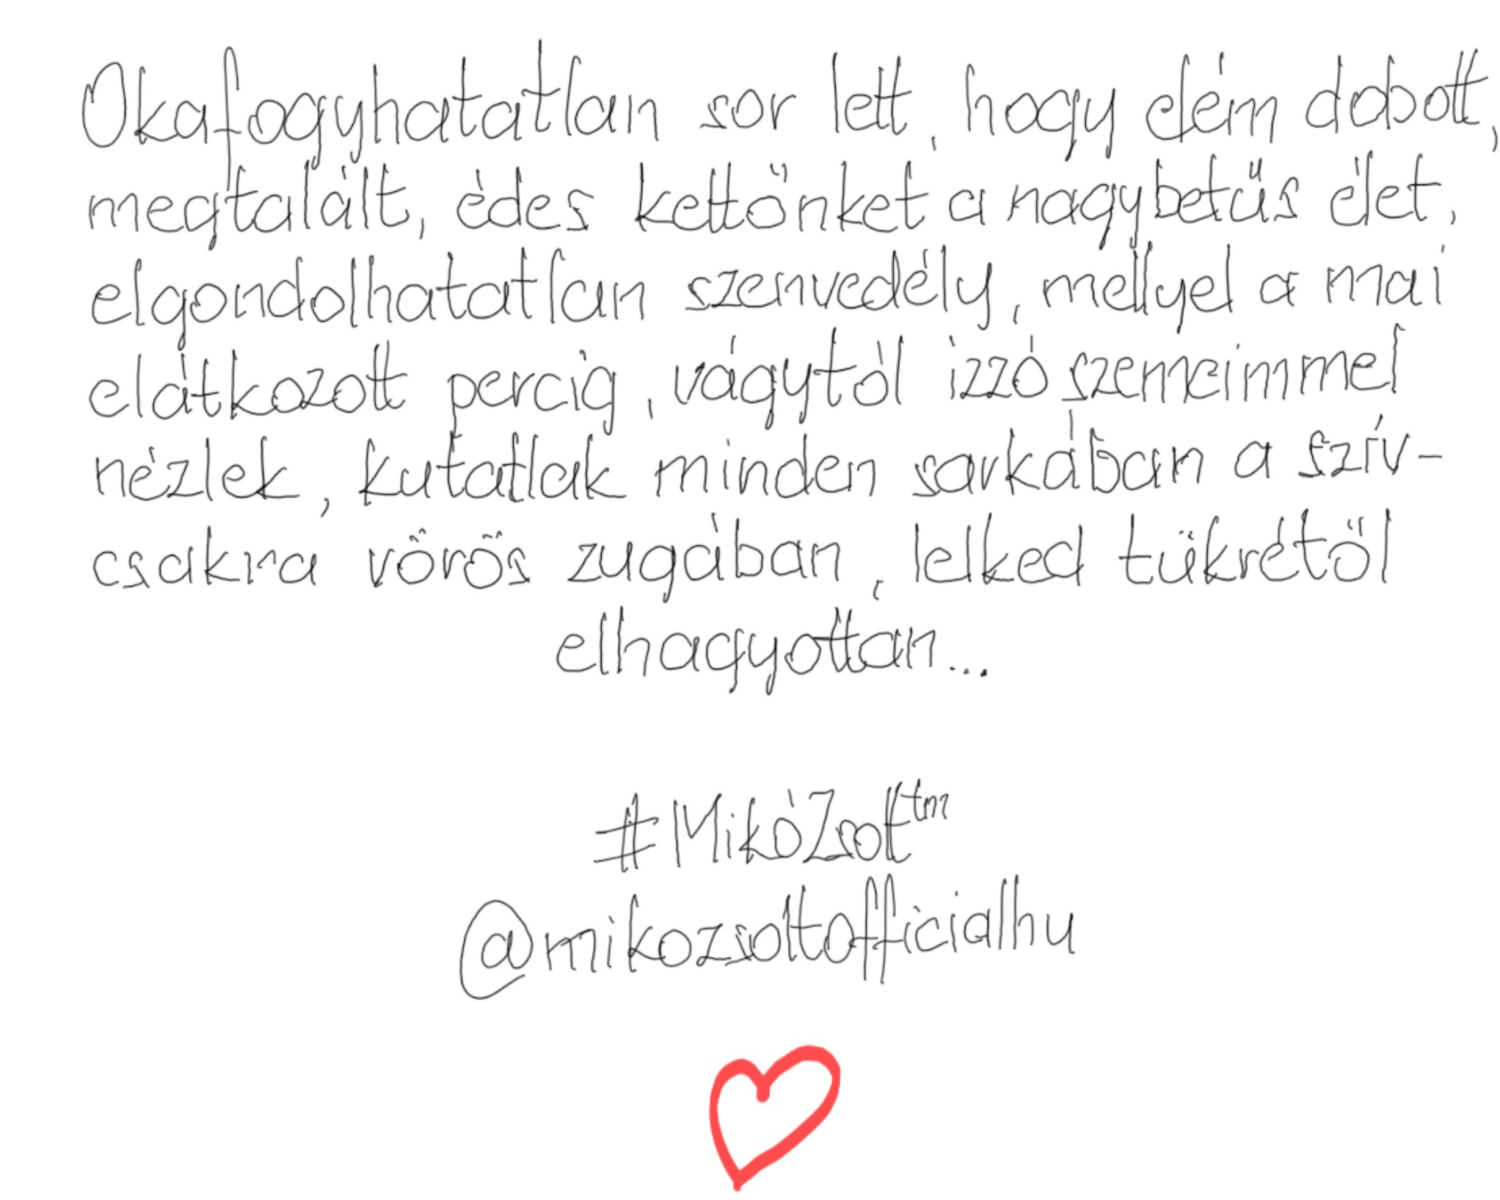 Okafogyhatatlan sor lett, hogy elém dobott,
megtalált, édes kettőnket a nagybetűs élet,
elgondolhatatlan szenvedély, mellyel a mai
elátkozott percig, vágytól izzó szemeimmel
nézlek, kutatlak minden sarkában a szív-
csakra vörös zugában, lelked tükrétől
elhagyottan...
#MikóZsolt™
@mikozsoltofficialhu